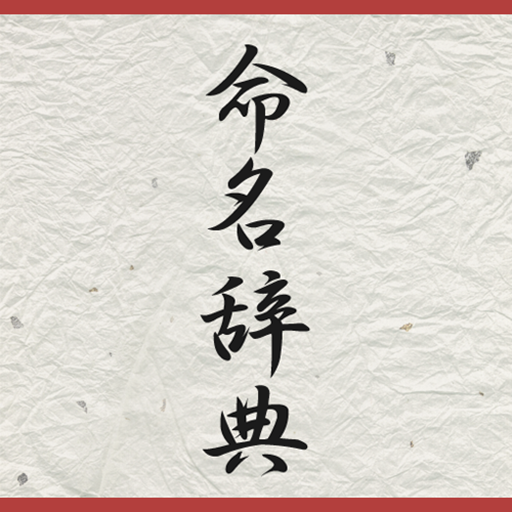 命名辞典